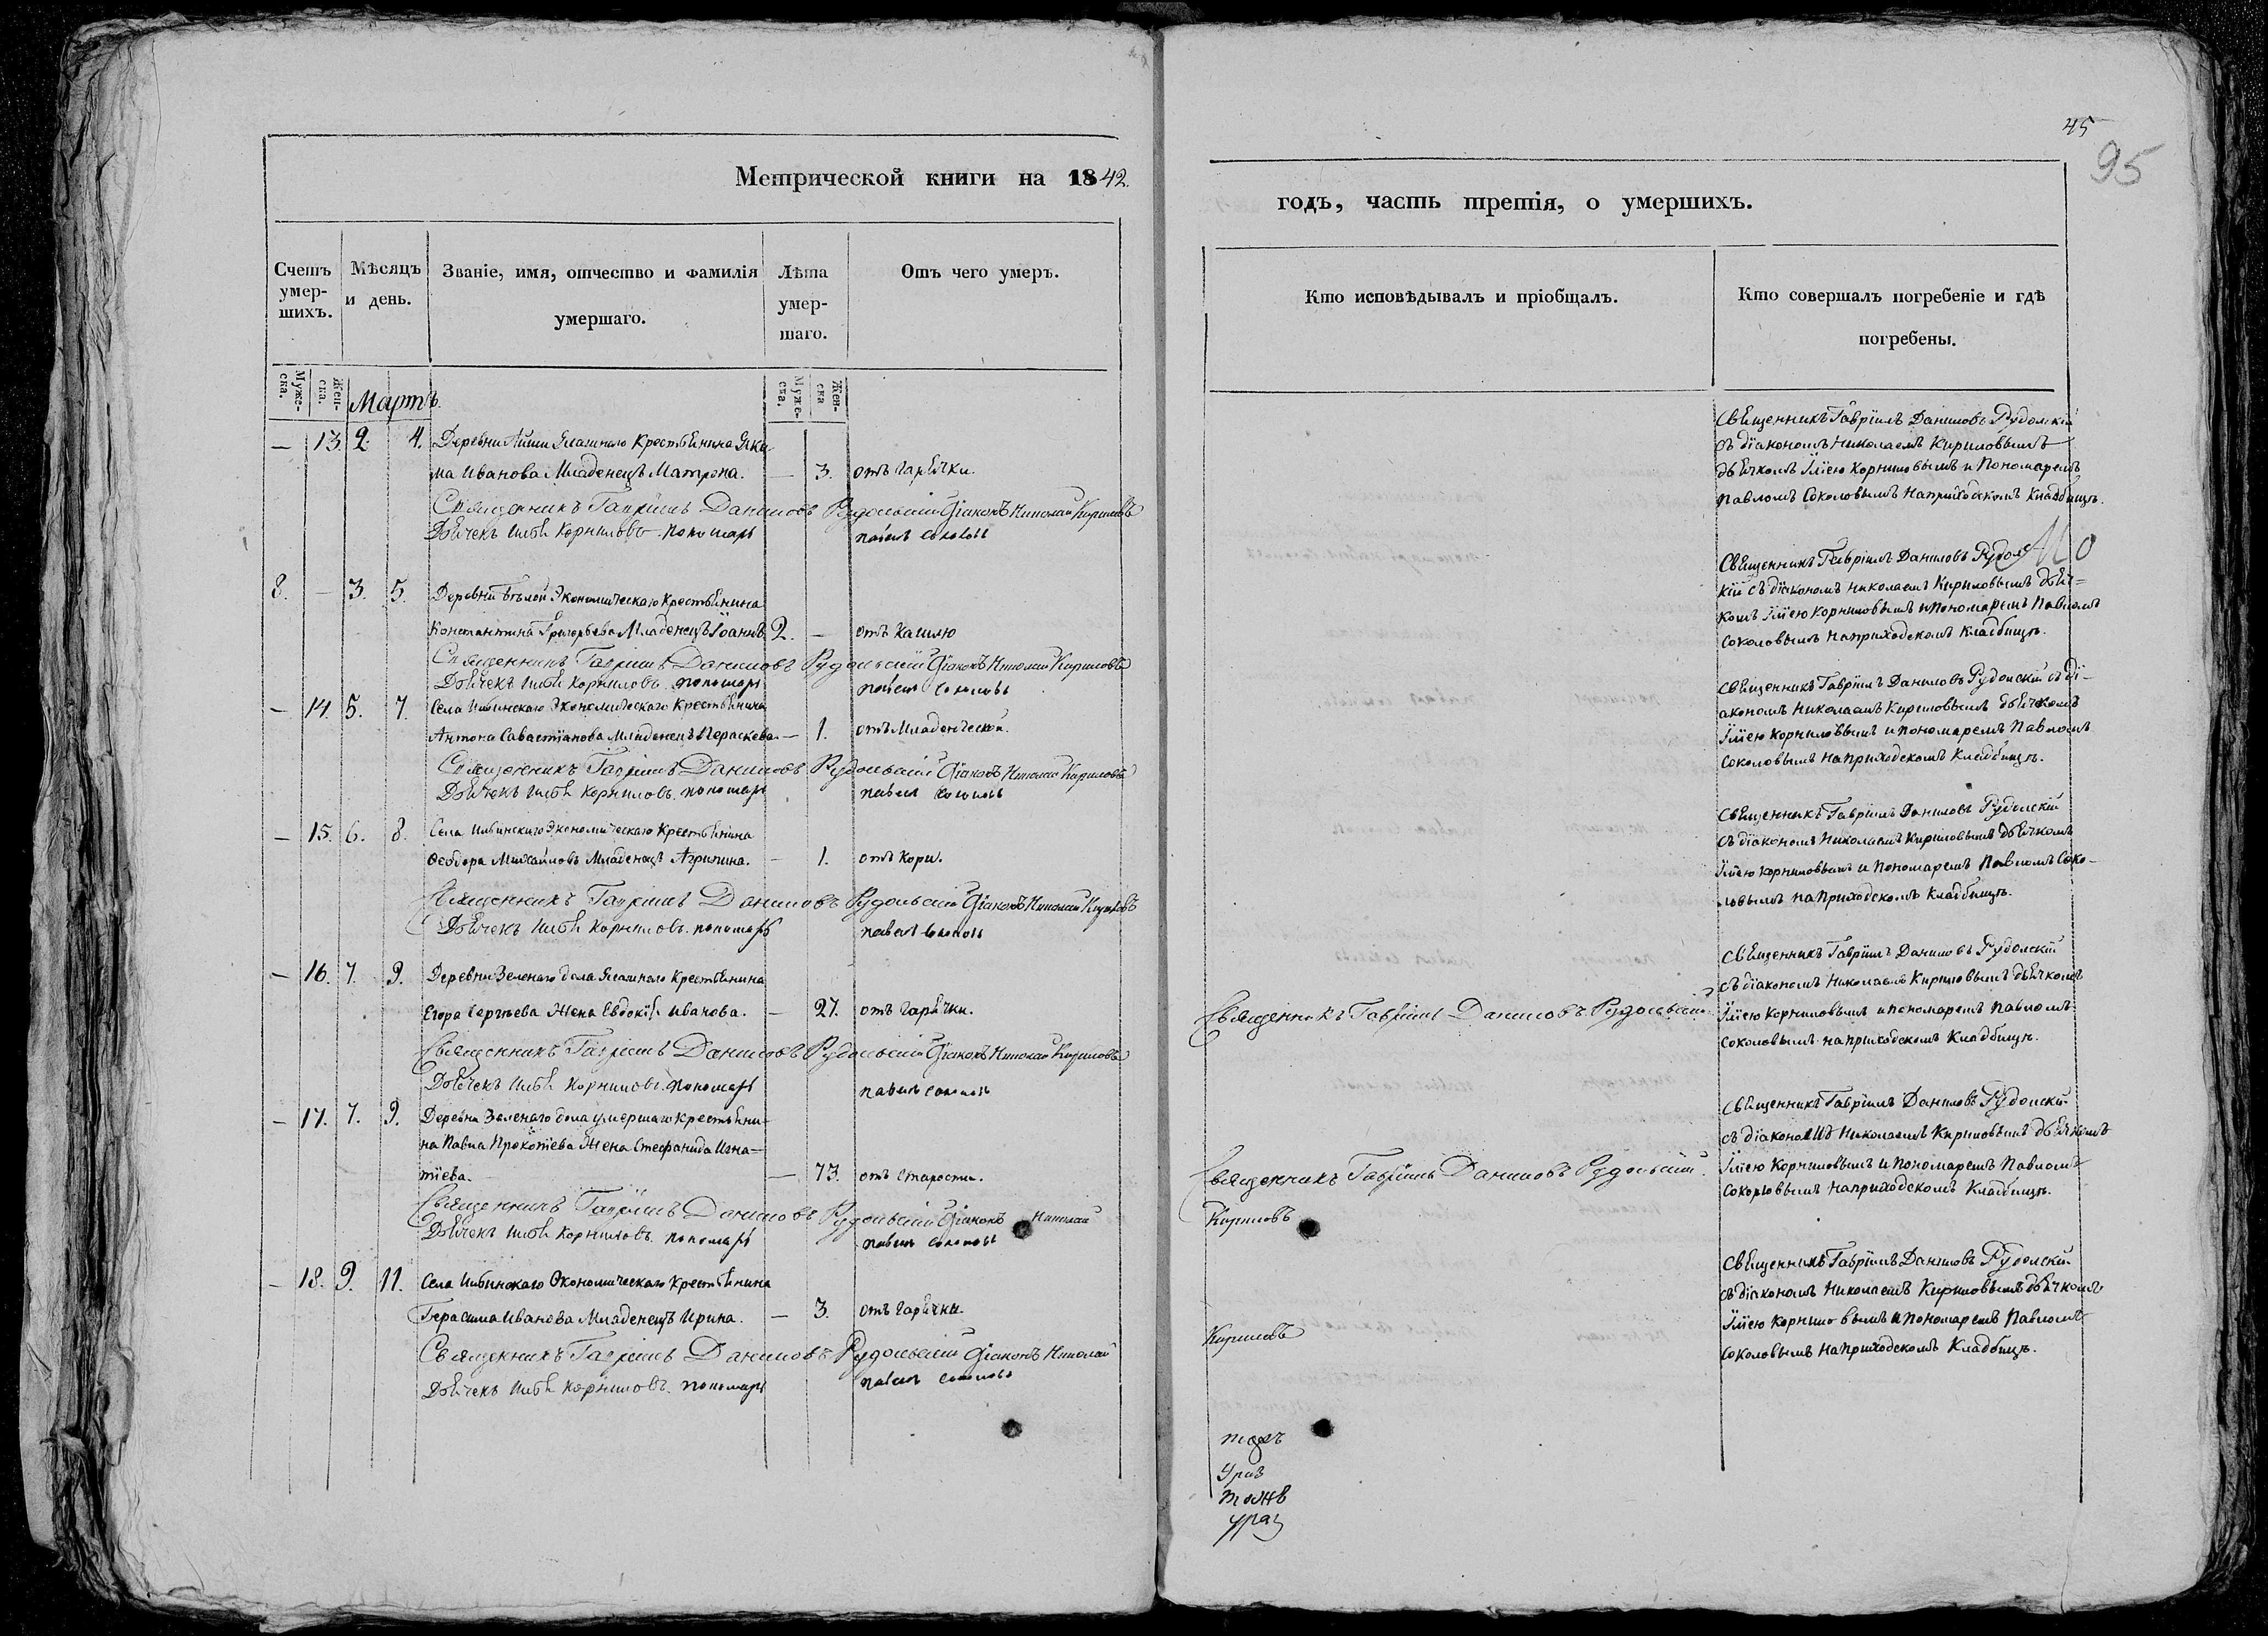 45
95
Метрической книги на 1842.
годъ, часть третія, о умершихъ.
Счетъ умер-шихъ.
Мѣсяцъ и день.
Званіе, имя, отчество и фамилія умершаго.
Лѣта умер-шаго.
Отъ чего умеръ.
Кто исповѣдывалъ и пріобщалъ.
Кто совершалъ погребеніе и гдѣ погребены.
Муже-ска.
Жен-ска.
Муже-ска.
Жен-ска
Мартъ.
— 13. 2. 4. Деревни Ясашнаго Крестьянина Яки-
ма Иванова Младенецъ Матрона. — 3. отъ Горячки.
Священникъ Гавріилъ Даниловъ Рудольскій Діаконъ Николай Кириловъ
Дьячекъ Илья Корниловъ. пономарь павелъ Соколовъ
Священникъ Гавріилъ Даниловъ Рудольскій
съ діакономъ Николаемъ Кириловымъ
дьячкомъ Іліею Корниловымъ и Пономаремъ
Павломъ Соколовымъ на приходскомъ Кладбищѣ.
8. — 3. 5. Деревни Бѣлой Экономическаго Крестьянина
Константина Григорьева Младенецъ Іоаннъ 2. — отъ Кашлю
Священникъ Гавріилъ Даниловъ Рудольскій Діаконъ Николай Кириловъ
Дьячекъ Илья Корниловъ. пономарь павелъ Соколовъ
Священникъ Гавріилъ Даниловъ Рудоль-
кій съ діакономъ Николаемъ Кириловымъ дьяч=
комъ Іліею Корниловымъ и Пономаремъ Павломъ
Соколовымъ на приходскомъ Кладбищѣ.
— 14. 5. 7. Села Ильинскаго Экономическаго Крестьянина
Антона Савастіанова Младенецъ Параскева. — 1. отъ Младенческой.
Священникъ Гавріилъ Даниловъ Рудольскій Діаконъ Николай Кириловъ
Дьячекъ Илья Корниловъ. пономарь павелъ Соколовъ
Священникъ Гавріилъ Даниловъ Рудольскій съ ді-
акономъ Николаемъ Кириловымъ дьячкомъ
Іліею Корниловымъ и пономаремъ Павломъ
Соколовымъ на Приходскомъ Кладбищѣ.
— 15. 6. 8. Села Ильинскаго Экономическаго Крестьянина
Ѳеодора Михайловъ Младенецъ Агрипина. — 1. отъ Кори.
Священникъ Гавріилъ Даниловъ Рудольскій Діаконъ Николай Кириловъ
Дьячекъ Илья Корниловъ. пономарь павелъ Соколовъ
Священникъ Гавріилъ Даниловъ Рудольскій
съ діакономъ Николаемъ Кириловымъ дьячкомъ
Іліею Корниловымъ и Пономаремъ Павломъ Соко-
ловымъ на Приходскомъ Кладбищѣ.
— 16. 7. 9. Деревни Зеленаго дола Ясашнаго Крестьянина
Егора Сергѣева Жена Евдокія Иванова. — 27. отъ Горячки.
Священникъ Гавріилъ Даниловъ Рудольскій Діаконъ Николай Кириловъ
Дьячекъ Илья Корниловъ. пономарь павелъ Соколовъ
Священникъ Гавріилъ Даниловъ Рудольскій
Священникъ Гавріилъ Даниловъ Рудольскій
съ діакономъ Николаемъ Кириловымъ дьячкомъ
Іліею Корниловымъ и пономаремъ Павломъ
Соколовымъ на приходскомъ Кладбищѣ.
— 17. 7. 9. Деревни Зеленаго дола умершаго Крестьяни-
на Павла Прокопіева Жена Стефанида Игна=
тіева. — 73. отъ Старости.
Священникъ Гавріилъ Даниловъ Рудольскій Діаконъ Николай
Кириловъ
Дьячекъ Илья Корниловъ. пономарь павелъ Соколовъ
Священникъ Гавріилъ Даниловъ Рудольскій.
Священникъ Гавріилъ Даниловъ Рудольскій
съ діакономъ Николаемъ Кириловымъ дьячкомъ
Іліею Корниловымъ и Пономаремъ Павломъ
Соколовымъ на приходскомъ Кладбищѣ.
— 18. 9. 11. Села Ильинскаго Экономическаго Крестьянина
Герасима Иванова Младенецъ Ирина. — 3. отъ Горячки.
Священникъ Гавріилъ Даниловъ Рудольскій Діаконъ Николай
Кириловъ
Дьячекъ Илья Корниловъ. пономарь павелъ Соколовъ
Священникъ Гавріилъ Даниловъ Рудольскій
съ діакономъ Николаемъ Кириловымъ дьячкомъ
Іліею Корниловымъ и Пономаремъ Павломъ
Соколовымъ на приходскомъ Кладбищѣ.